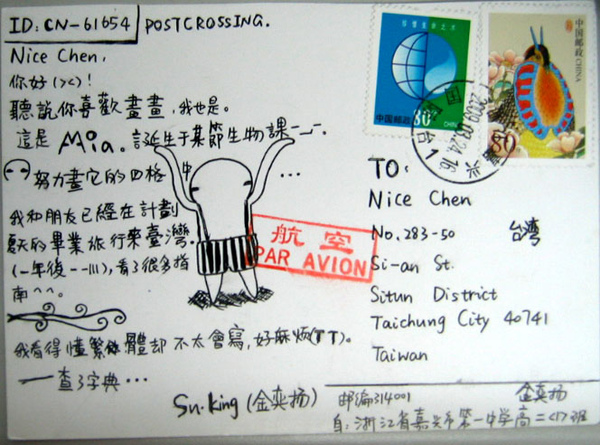 ID: CN-61654
POSTCROSSING.
Nice Chen,
你好(><)!
聽說你喜歡畫畫,我也是。
這是 Mia。誕生于某節生物課-_-.
努力畫它的四格中 ...
我和朋友已經在計劃
夏天的畢業旅行來臺灣.
(一年後--III),看了很多指
南^^。
我看得懂繁体體却不太會寫,好麻煩(TT).
—查了字典...
Su·King (金奕扬)
中国邮政 80
CHINA
中国邮政
CHINA
80
2009
16
航空
PAR AVION
TO:
Nice Chen
No.283-50 台湾
Si-an St.
Situn District
Taichung City 40741
Taiwan
邮编314001 金奕扬
自:浙江省嘉兴市第一中学高二<17>班